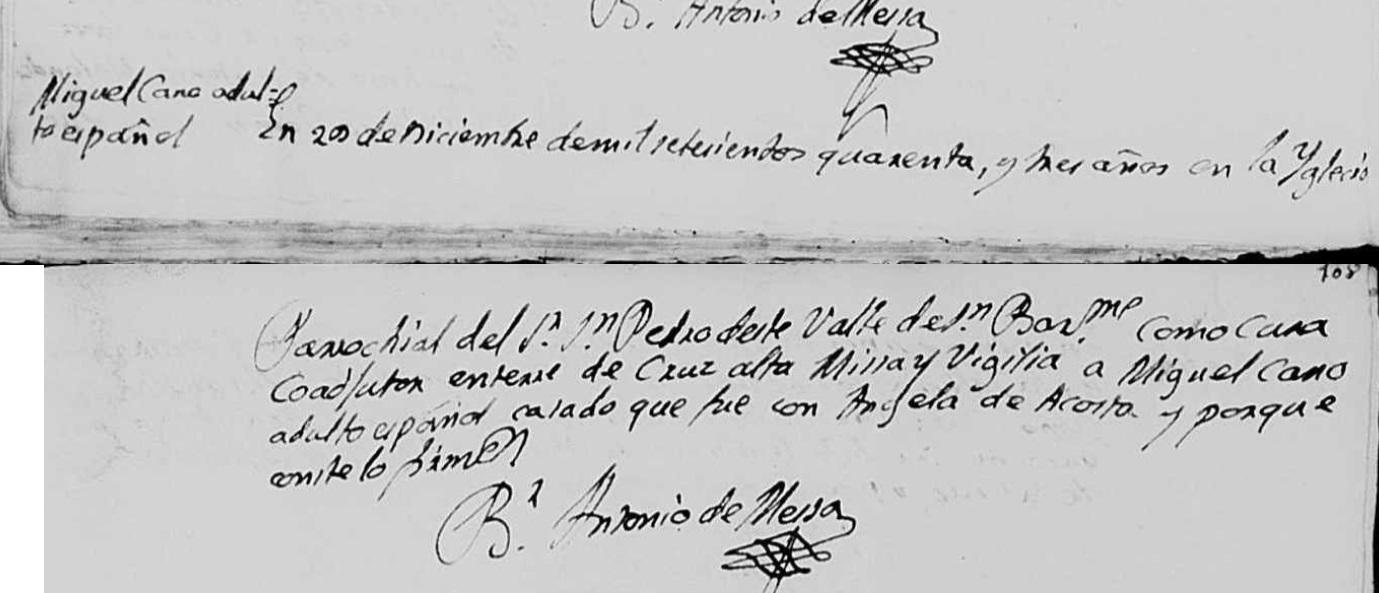 B.r Antonio de Messa
Miguel Cano adul=
to español
En 20 de Diciembre de mil setecientos quarenta, y tres años en la Yglecia
108
Parrochial del S.r S.n Pedro deste Valle de S.n Bar.me como Cura
Coadjutor enterre de Cruz alta Missa y Vigilia a Miguel Cano
adulto español casado que fue con Angela de Acosta y porque
conste lo firme
B.r Antonio de Messa